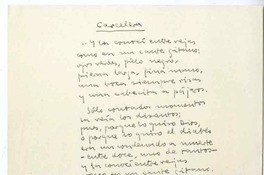 Carcelera
... Y la conocí entre rejas,
como en un cante gitano:
ojos verdes, pelo negro,
pierna larga, fina mano,
una boca siempre risa
y una cabecita a pájaros.
Sólo contados momentos
se veían los dos
pues, porque lo quiso Dios,
o porque lo quiso el diablo
era un condenado a muerte
entre doce, uno de tantos
y la conocí entre rejas
como en un cante gitano.